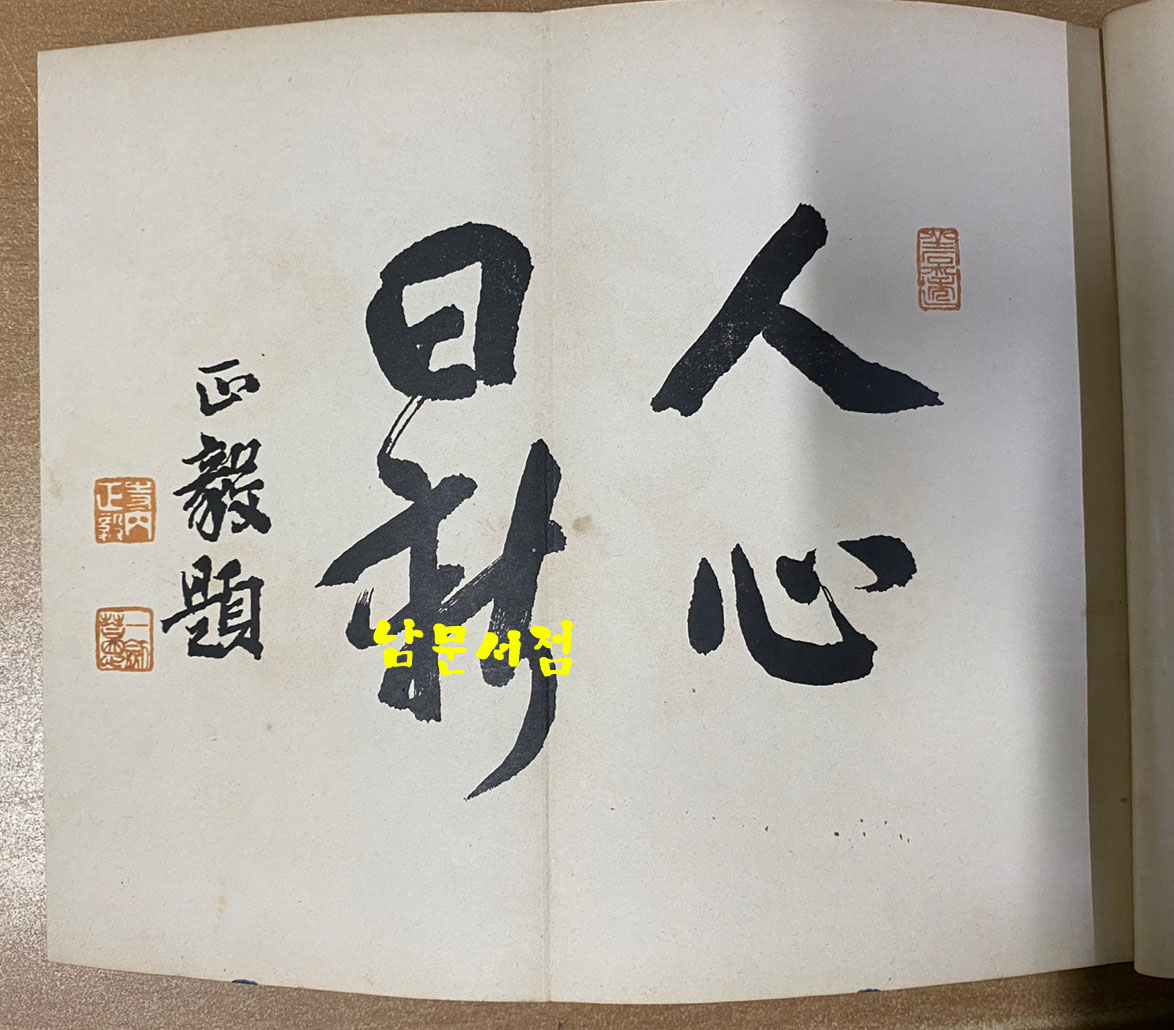 人心
日新
正毅題
남문서점